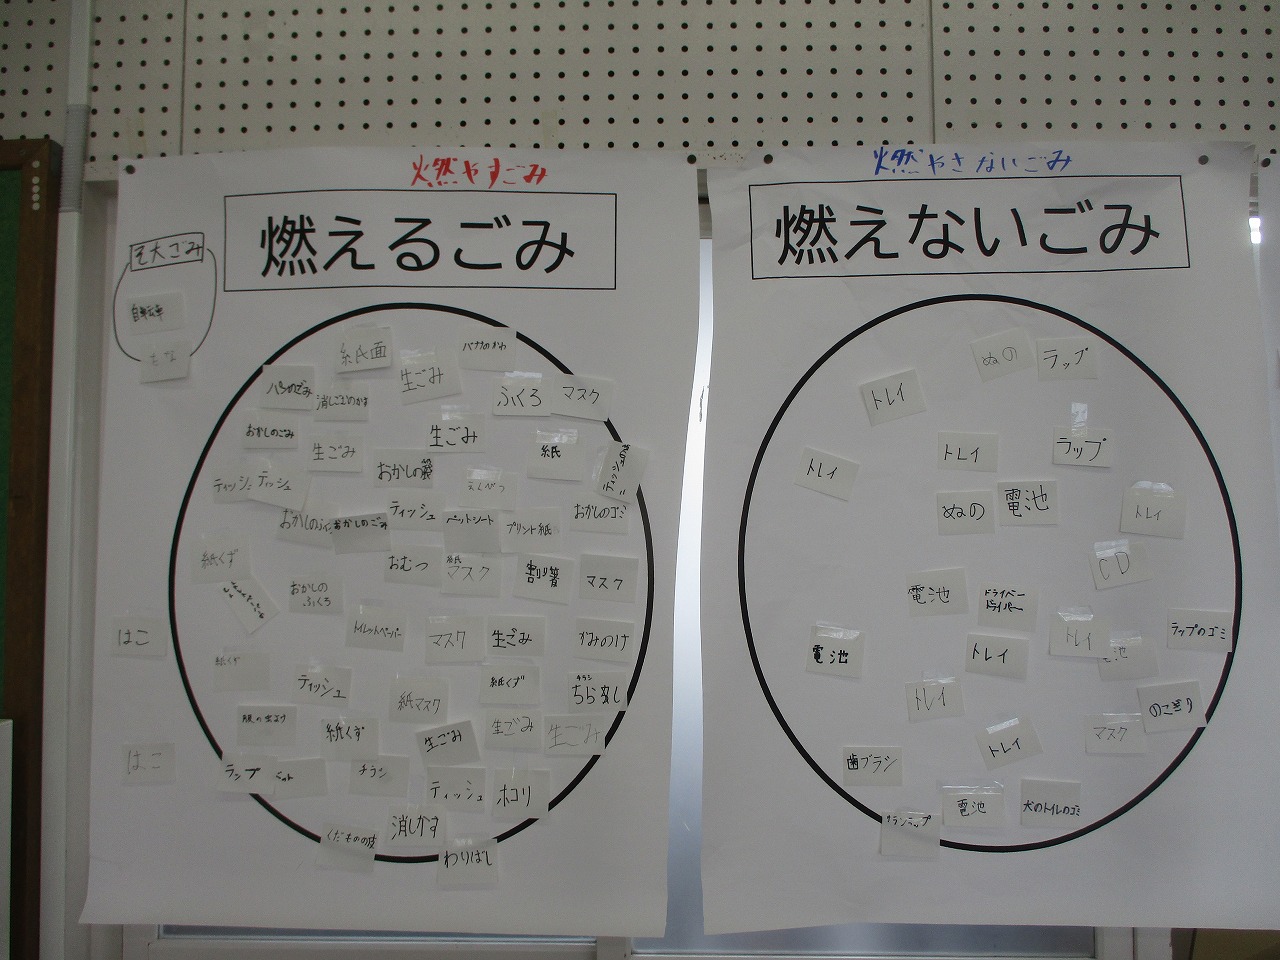 燃やすごみ
燃えるごみ
そ大ごみ
自転車
紙面
生ごみ
バナナのかわ
消しごむのかす
ふくろ
マスク
おかしのごみ
生ごみ
生ごみ
おかしの袋
紙
ティッシュ
ティッシュ
えんぴつ
おかしのごみ
ティッシュ
ペットシート
プリント紙
おかしのゴミ
紙くず
おかしの
ふくろ
おむつ
紙
マスク
割り箸
マスク
はこ
トイレットペーパー
マスク
生ごみ
紙くず
ティッシュ
紙マスク
紙くず
チラシ
紙くず
生ごみ
生ごみ
生ごみ
はこ
ラップ
チラシ
ティッシュ
ホコリ
くだものの皮
消しかす
わりばし
燃やさないごみ
燃えないごみ
ぬの
ラップ
トレイ
トレイ
トレイ
ラップ
ぬの
電池
トレイ
CD
電池
ドライバー
ドライバー
電池
トレイ
トレイ
ラップのゴミ
トレイ
のこぎり
トレイ
マスク
歯ブラシ
サランラップ
電池
犬のトイレのゴミ